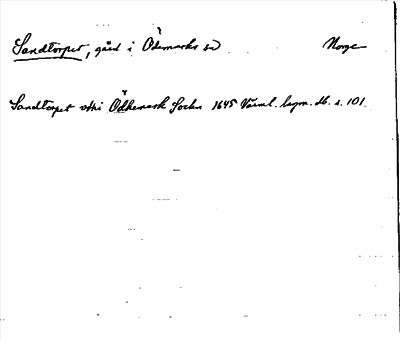 Sandtorpet, gård i Ödemarks sn Norge
Sandtorpet vthi Ödhemark Sochn 1645 Värml. lagm. db. s. 101.